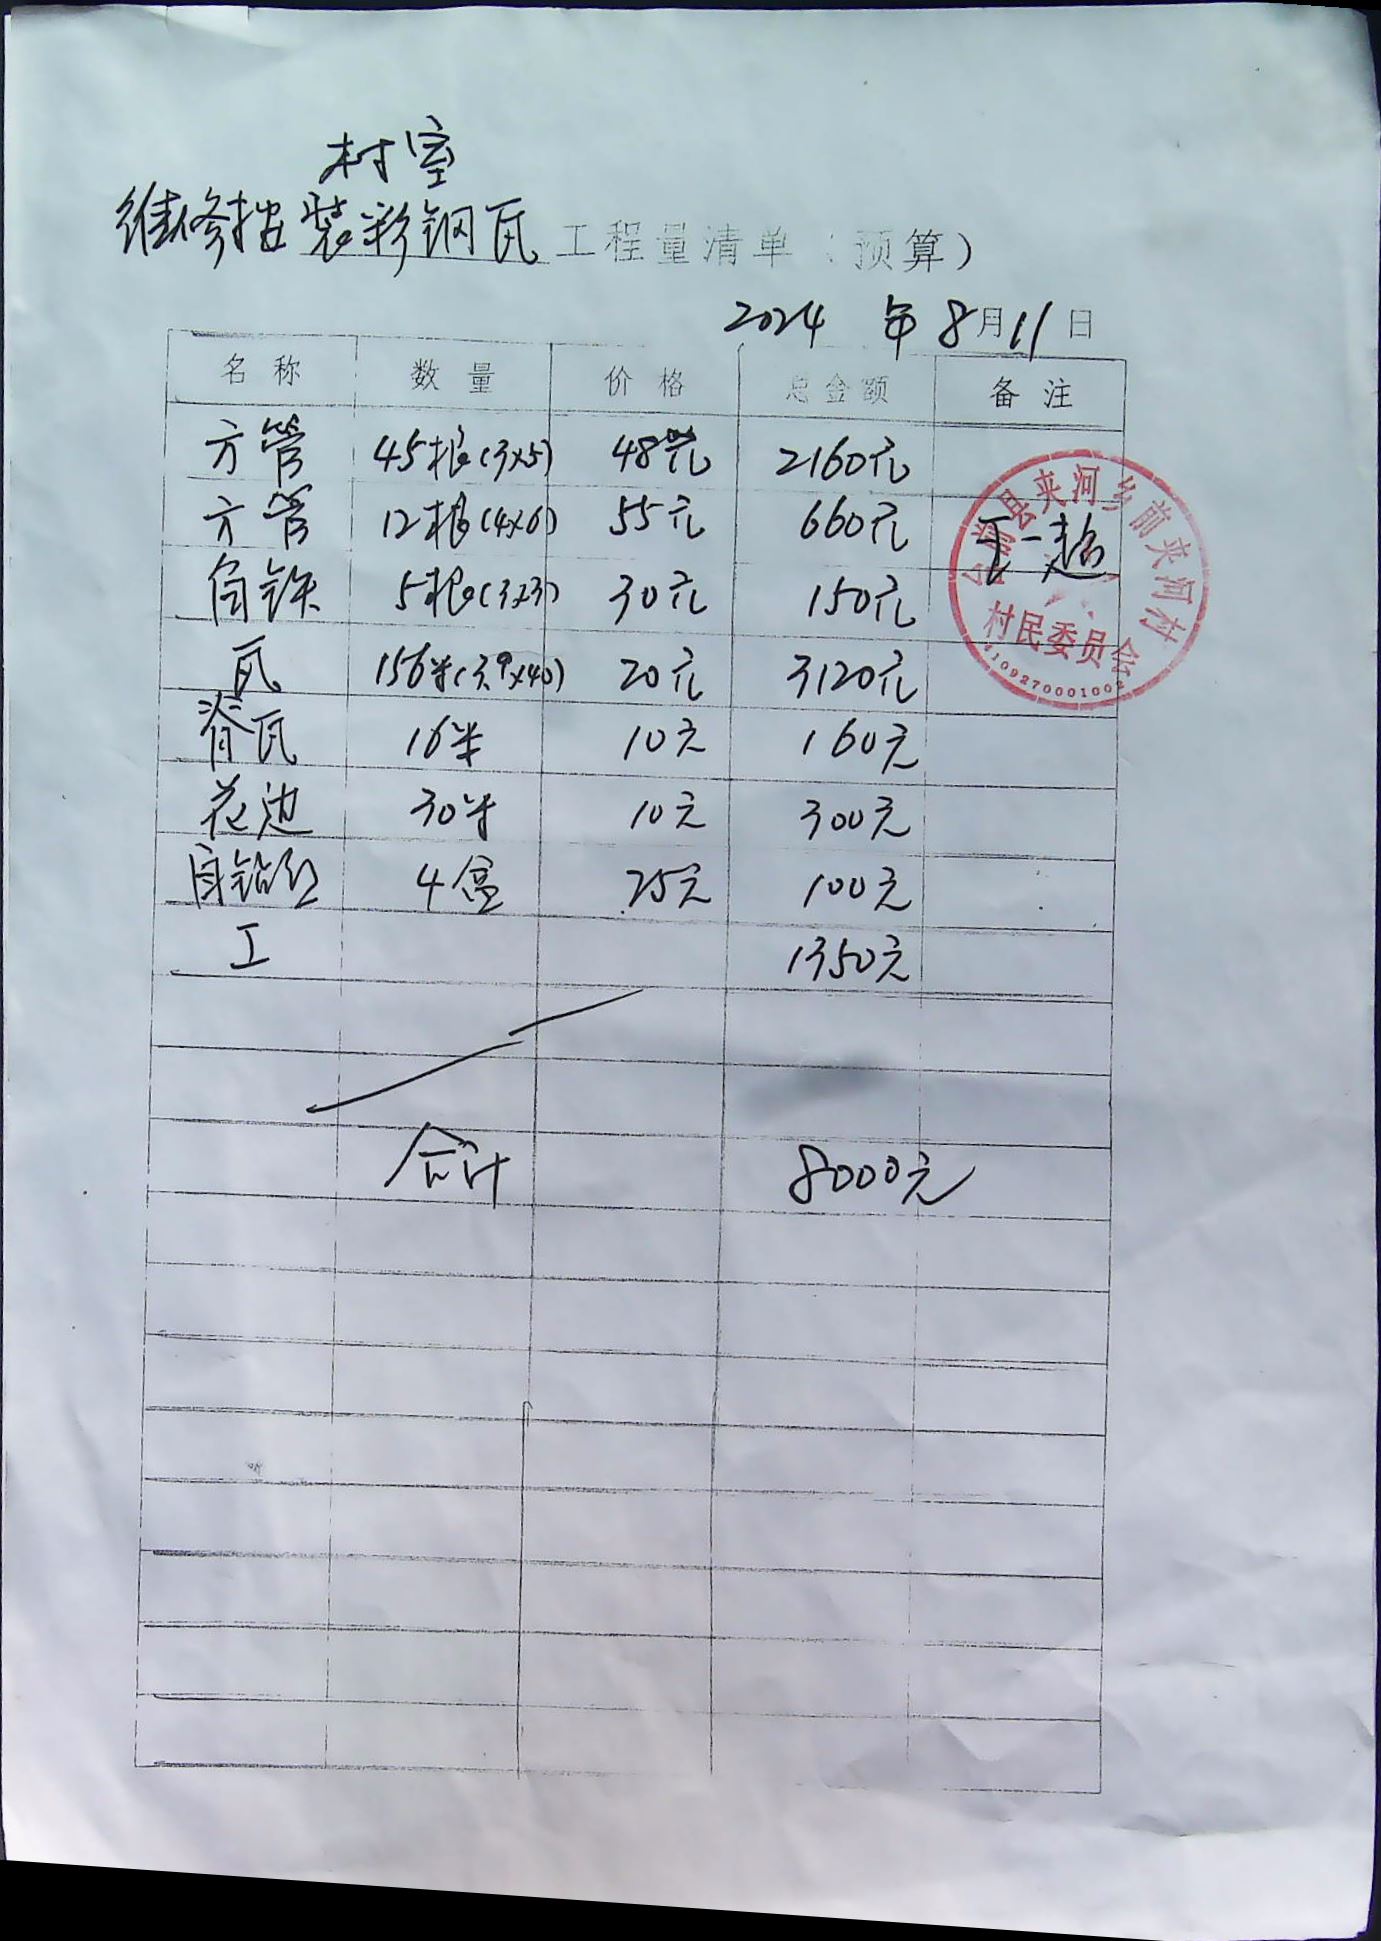 村室
维修拙装彩钢瓦工程量清单（预算）
2024 年 8月11日
名称 数量 价格 总金额 备注
方管 45根(3x5) 48元 2160元
方管 12根(4x6) 55元 660元
角铁 5根(3x3) 30元 150元
瓦 156米(3.9x40) 20元 3120元
脊瓦 16米 10元 160元
花边 30米 10元 300元
自钻钉 4盒 25元 100元
工 1350元
合计 8000元
台前县夹河乡前夹河村
村民委员会
4109270001002